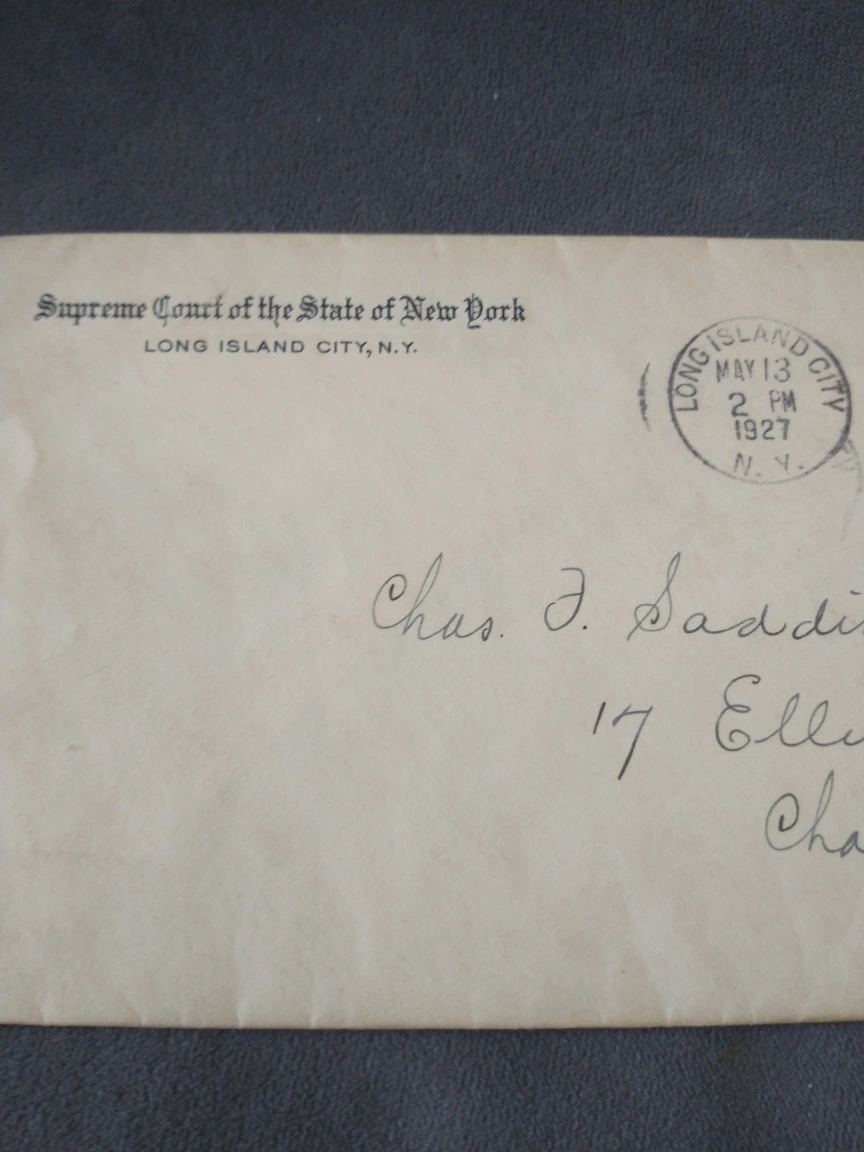 Supreme Court of the State of New York
LONG ISLAND CITY, N.Y.
LONG ISLAND CITY
MAY 13
2 PM
1927
N. Y.
Chas. F. Saddi
17 Elli
Cha